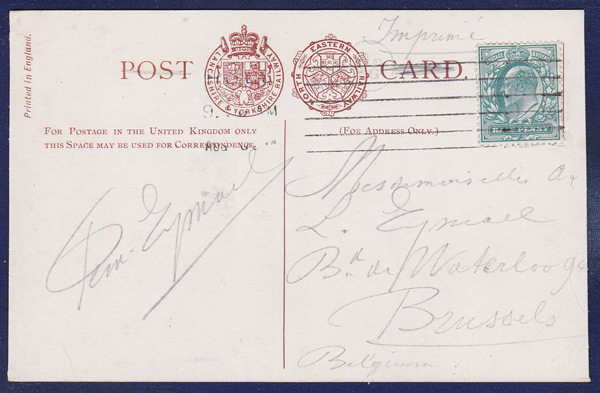 Printed in England.
Imprimé
POST CARD.
LANCASHIRE & YORKSHIRE RAILWAY
NORTH EASTERN RAILWAY
POSTAGE REVENUE
HALFPENNY
FOR POSTAGE IN THE UNITED KINGDOM ONLY
THIS SPACE MAY BE USED FOR CORRESPONDENCE.
(FOR ADDRESS ONLY.)
Eymael
Mesdemoiselles
L. Eymael
Bd de Waterloo 94
Brussels
Belgium